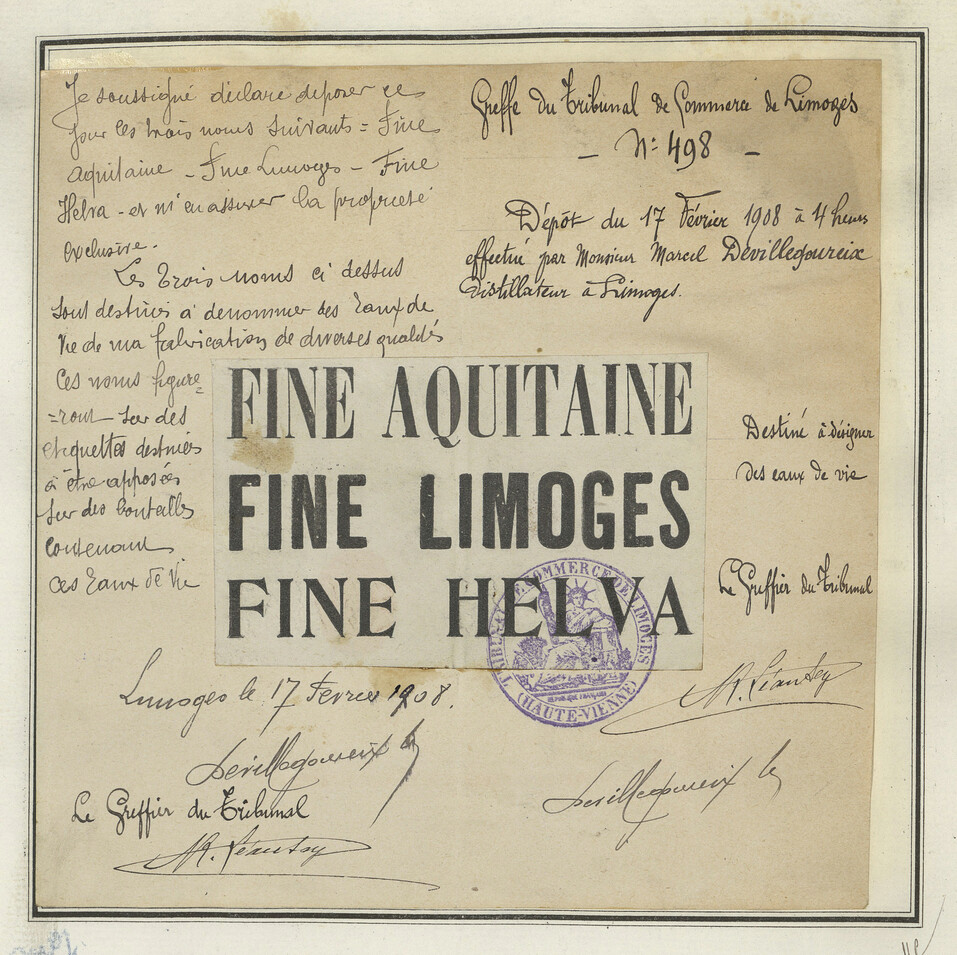 Je soussigné déclare déposer ce
jour les trois noms suivants = Fine
Aquitaine - Fine Limoges - Fine
Helva - et m'en assurer la propriété
exclusive.
Les trois noms ci dessus
sont destinés à dénommer des Eaux de
Vie de ma fabrication de diverses qualités
Ces noms figure=
=ront sur des
etiquettes destinées
à être apposées
sur des bouteilles
contenant
ces Eaux de Vie
Greffe du Tribunal de Commerce de Limoges
- N: 498 -
Dépôt du 17 Février 1908 à 4 heures
effectué par Monsieur Marcel Devillegoureix
Distillateur à Limoges.
FINE AQUITAINE
FINE LIMOGES
FINE HELVA
Destiné à désigner
des eaux de vie
Le Greffier du Tribunal
TRIBUNAL DE COMMERCE DE LIMOGES
(HAUTE-VIENNE)
Limoges le 17 Fevrier 1908.
Devillegoureix
Le Greffier du Tribunal
Devillegoureix